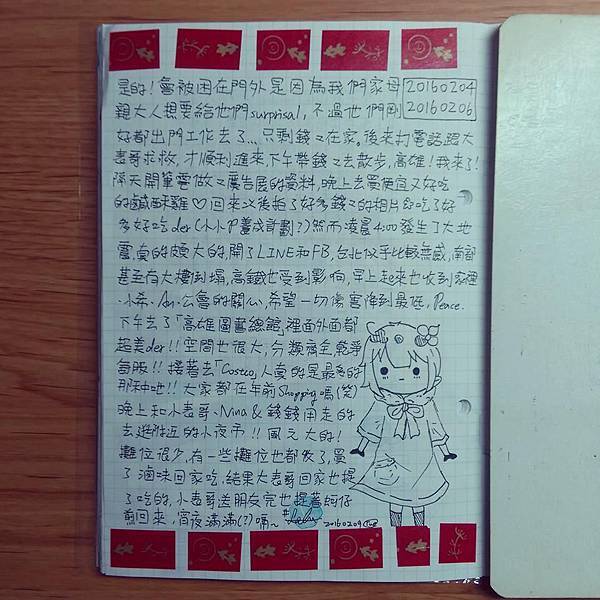 是的！會被困在門外是因為我們家母
20160204
20160206
親大人想要給他們surprisal，不過他們剛
好都出門工作去了...只剩錢錢在家。後來打電話跟大
表哥求救，才順利進來下午帶錢錢去散步，高雄！我來了！
隔天開筆電做錢廣告展的資料，晚上去買便宜又好吃
的鹹酥雞♡回來以後拍了好多錢錢的相片&吃了好
多好吃der(小小P養成計劃?)然而凌晨4:00發生了大地
震，真的頗大的，開了LINE和FB，台北似乎比較無感，南部
甚至有大樓倒塌，高鐵也受到影響，早上起來也收到家裡
、小希、An、公會的關心，希望一切傷害降到最低，Peace.
下午去了「高雄圖書總館」裡面外面都
超美der!!空間也很大，分類齊全，乾淨
舒服!!接著去「Costco」人蠻的是最多的
那種吧!!大家都在年前Shopping嗎(笑)
晚上和小表哥、Nina&錢錢用走的
去逛附近的小夜市!!風元大的!
攤位很少，有一些攤位也都收了，買
了滷味回家吃，結果大表哥回家也提
了吃的，小表哥送朋友完也提著蚵仔
煎回來，宵夜滿滿(?)嗝~
20160209